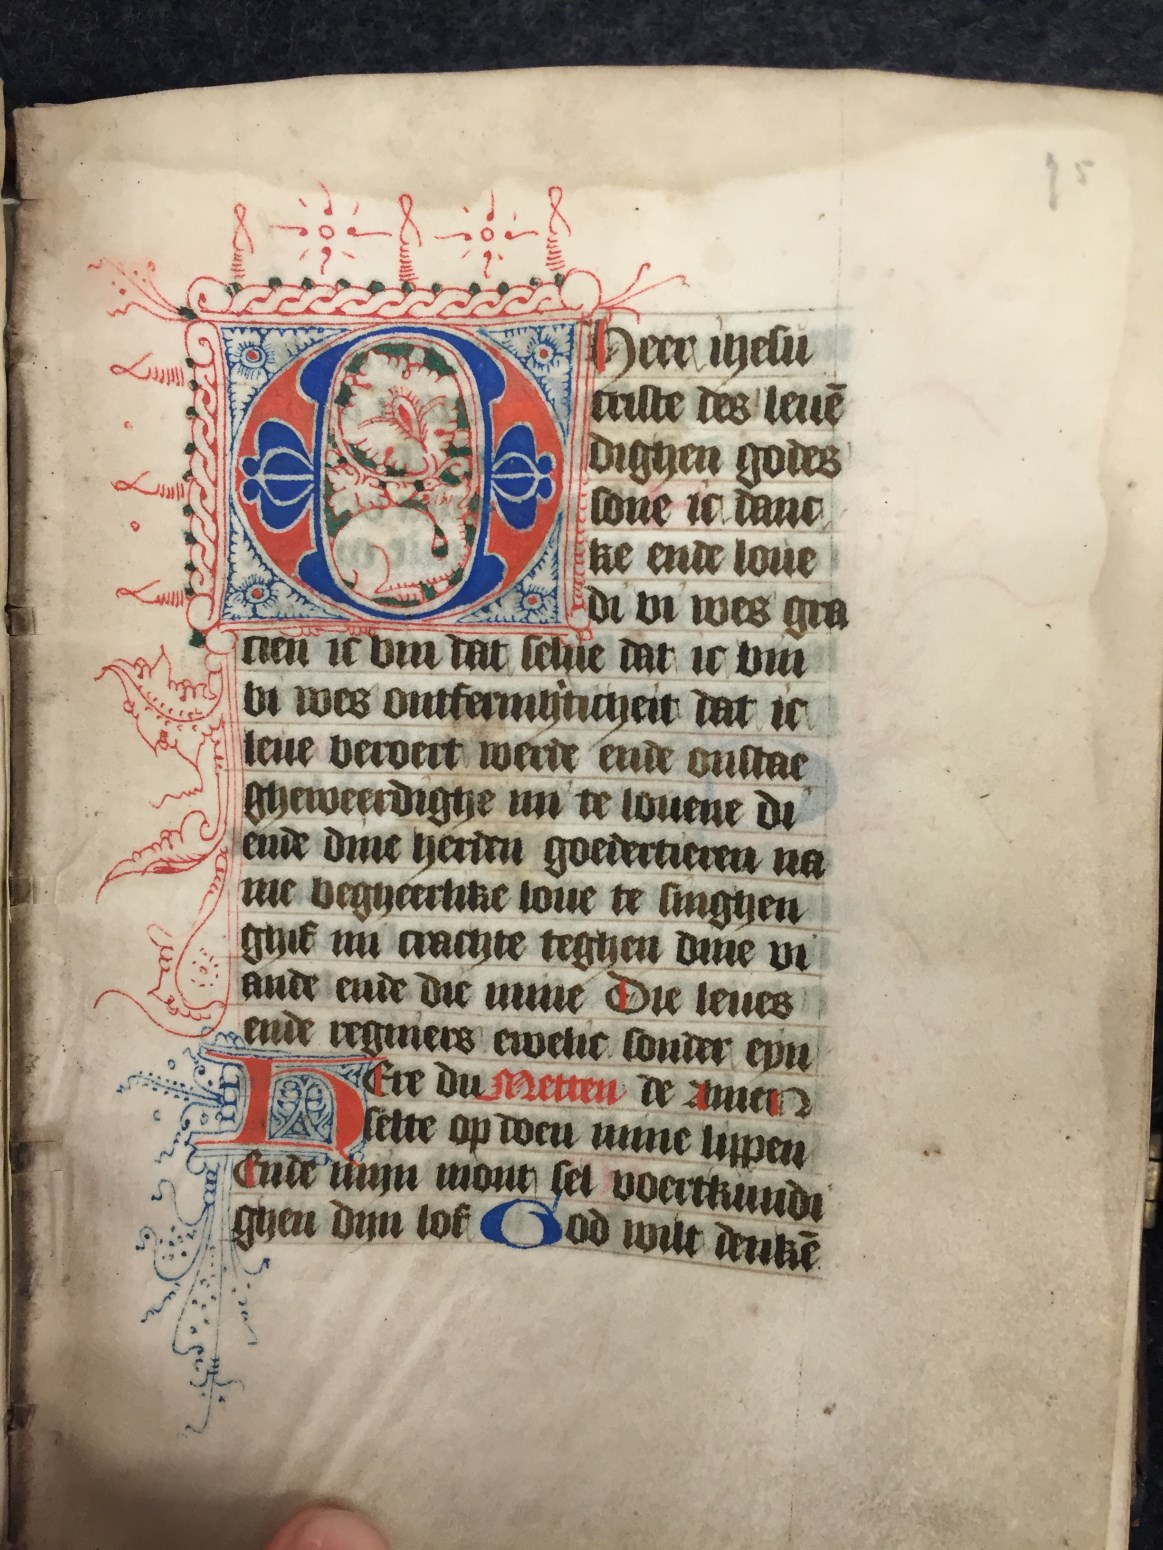 95
O Heer ihesu
criste des leuē
dighen godes
sone ic danc
ke ende loue
di bi wes gra
cien ic bin dat selue dat ic bin
bi wes ontfermhticheit dat ic
leue beroert werde ende onstae
gheweerdighe mi te louene di
ende dine herden goedertieren na
me begheerlike loue te singhen
ghif mi crachte teghen dine vi
ande ende die mine Die leues
ende regniers ewelic sonder eyn
HEre du Metten de Amen
selte op doen mine lippen
Ende mijn mont sel voertkundi
ghen dijn lof God wilt denkē